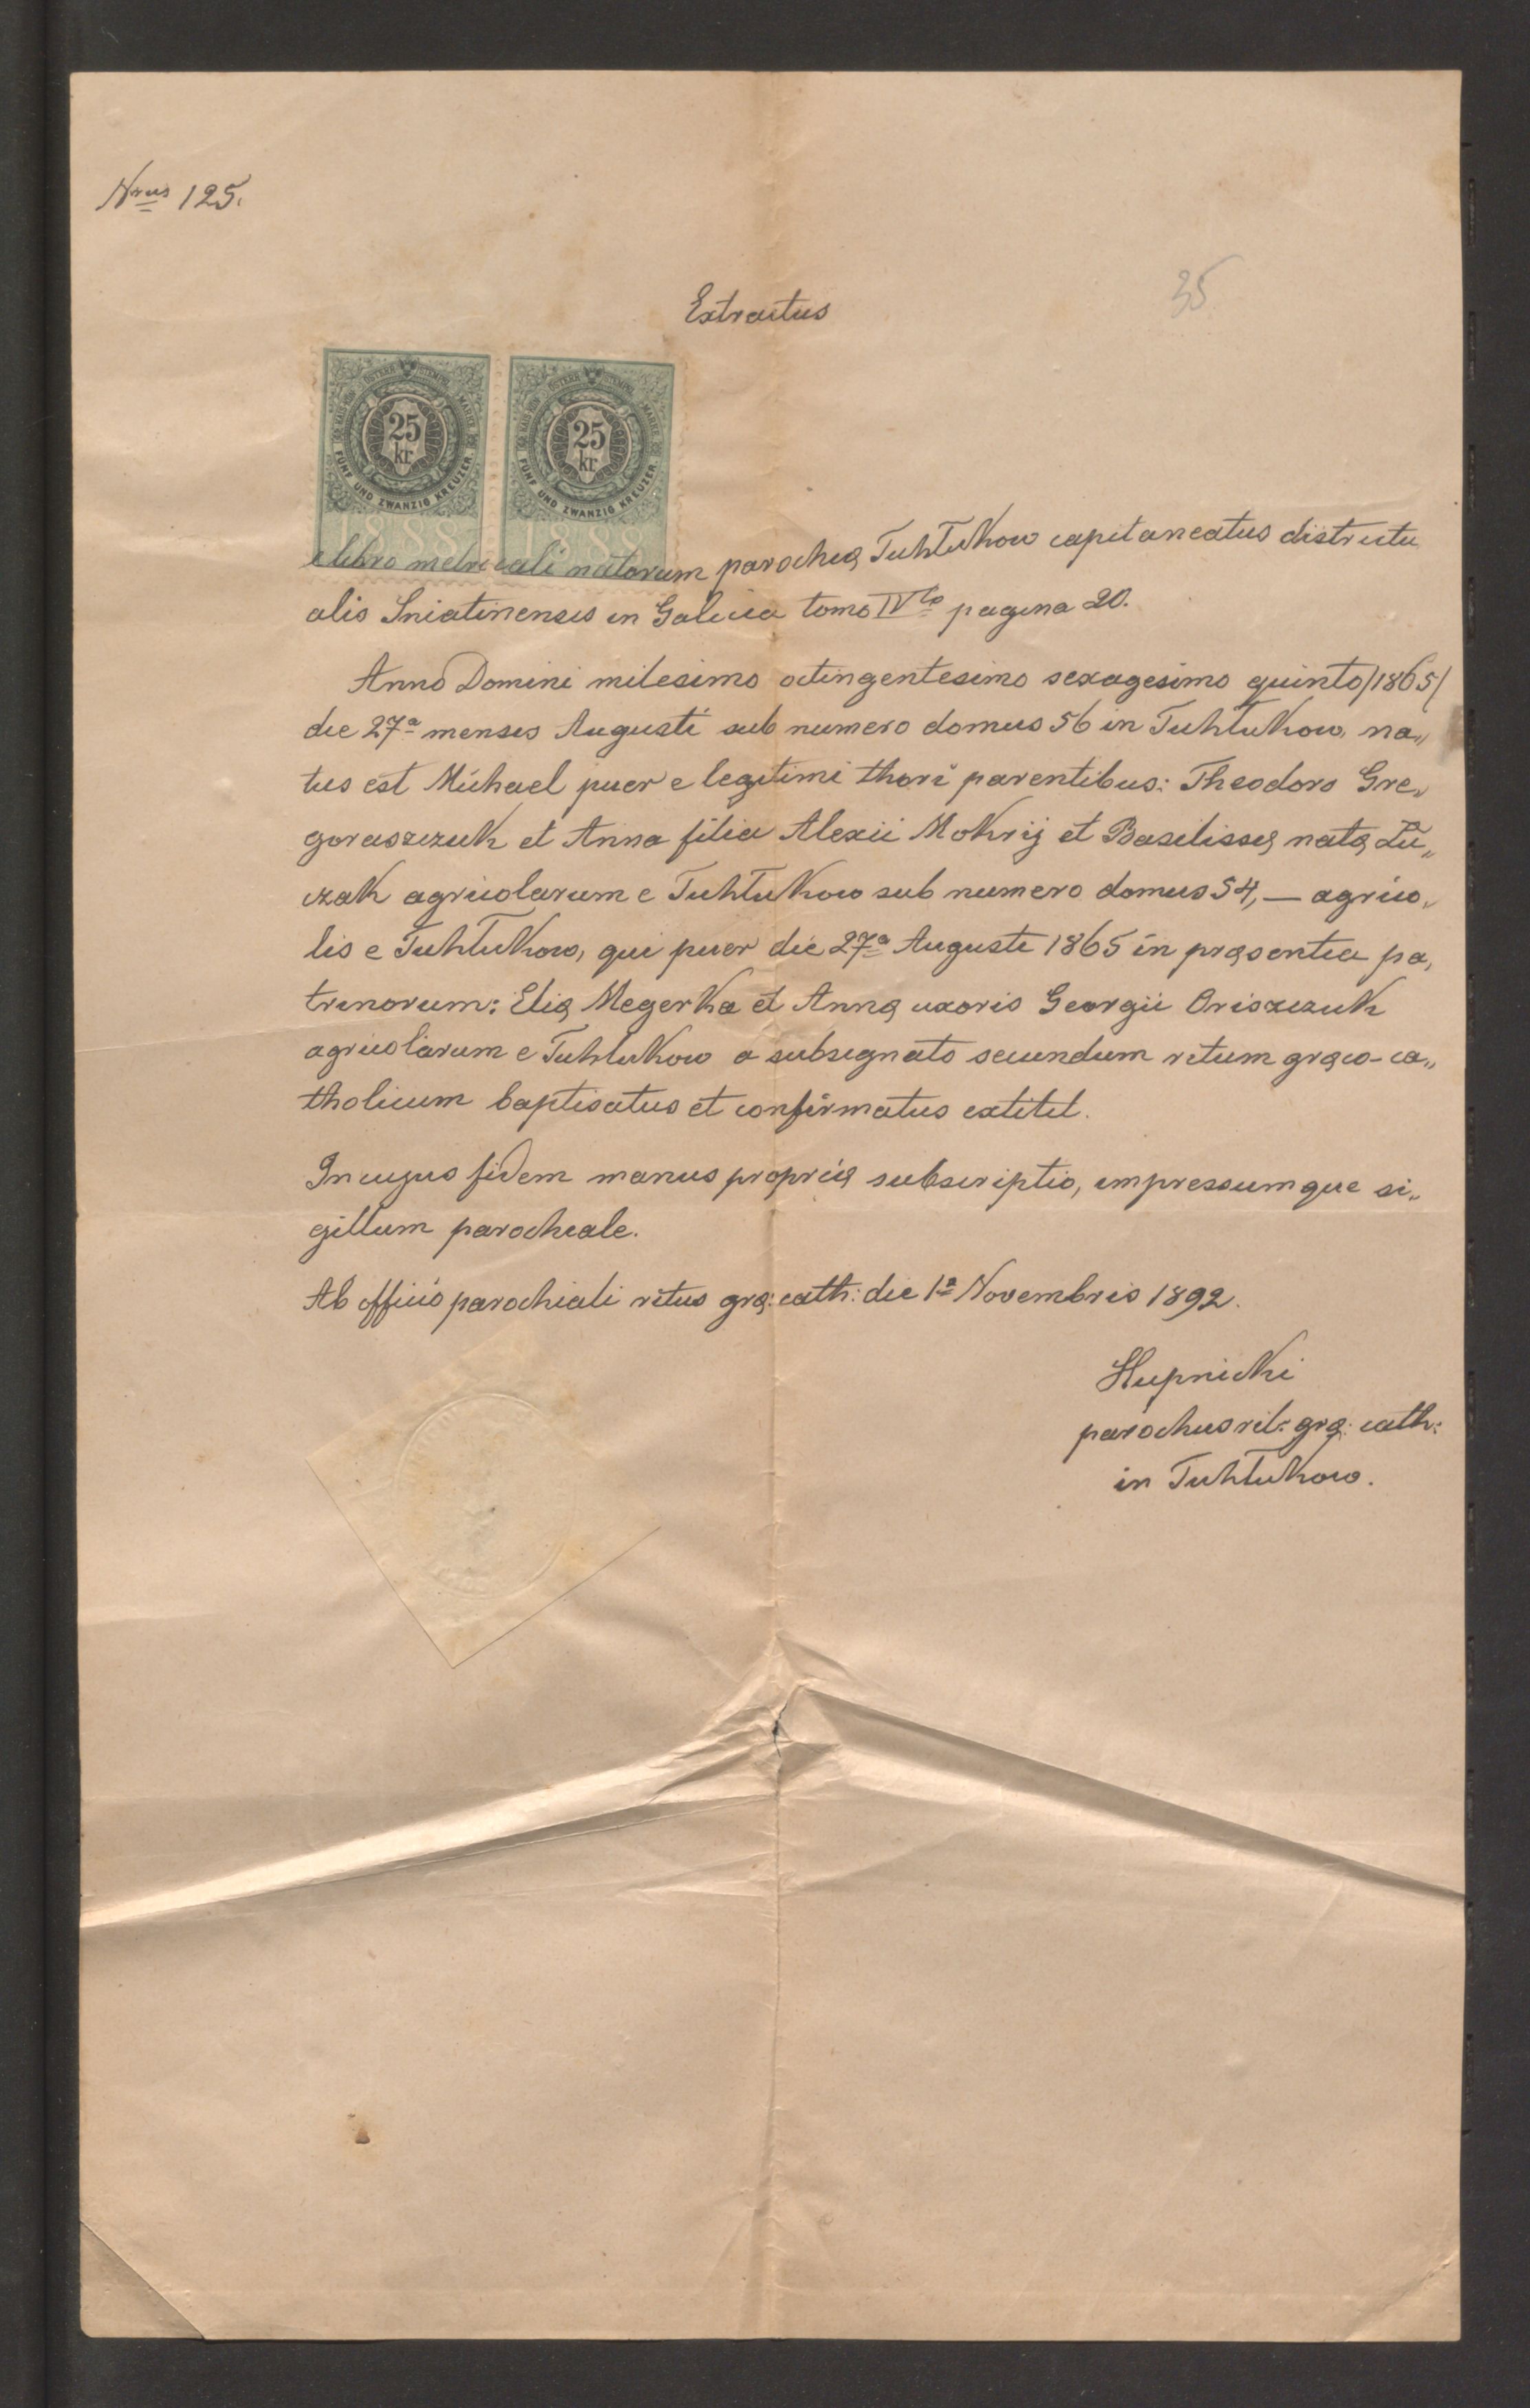 Nrus 125.
35
Extractus
25 kr
FÜNF UND ZWANZIG KREUZER
1888
25 kr
FÜNF UND ZWANZIG KREUZER
1888
e libro metricali natorum parochię Tułukow capitaneatus districtu
alis Sniatinensis in Galicia tomo IVto pagina 20.
Anno Domini milesimo octingentesimo sexagesimo quinto /1865/
die 27a mensis Augusti sub numero domus 56 in Tułukow, na„
tus est Michael puer e legitimi thori parentibus: Theodoro Gre„
goraszczuk et Anna filia Alexii Mokrij et Basilissę natę Łu„
czak agricolarum e Tułukow sub numero domus 54, — agrico„
lis e Tułukow, qui puer die 27a Augusti 1865 in pręsentia pa„
trinorum: Elię Megerka et Annę uxoris Georgii Oriszczuk
agricolarum e Tułukow a subsignato secundum ritum gręco-ca„
tholicum baptisatus et confirmatus extitit.
In cujus fidem manus proprię subscriptio, impressumque si„
gillum parochiale.
Ab officio parochiali ritus grę: cath: die 1a Novembris 1892.
parochus rit: grę: cath:
in Tułukow.